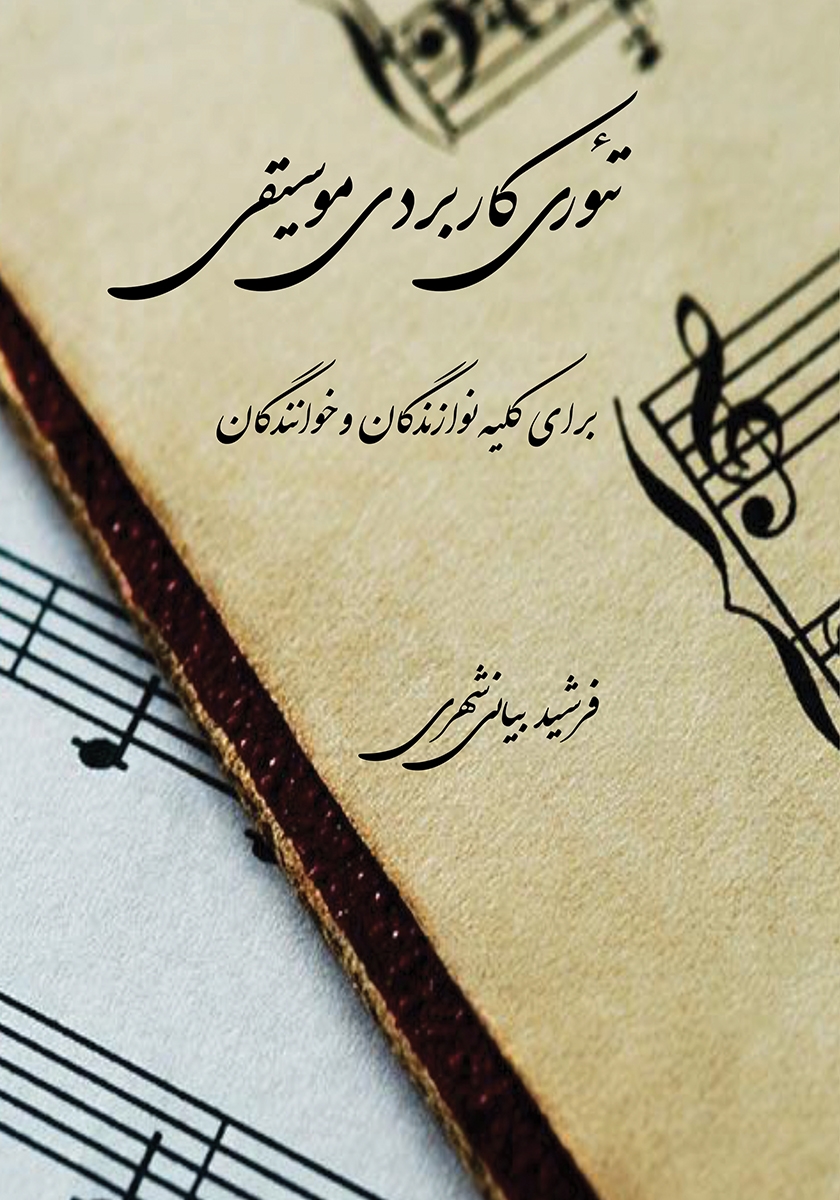 تئوری کاربردی موسیقی
برای کلیه نوازندگان و خوانندگان
فرشید بیانی‌شهری